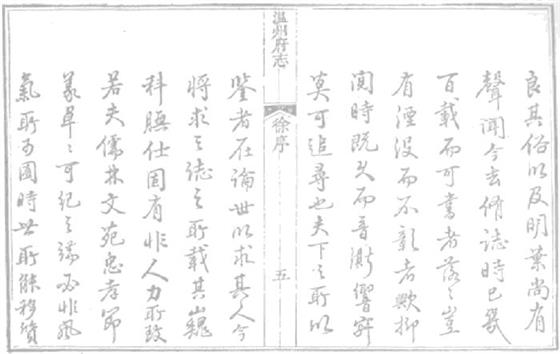 良其俗以及明葉尚有
聲聞今去脩誌時已幾
百載而可書者落〻豈
有湮没而不彰者歟抑
閱時既久而音漸響寂
莫可追尋也夫下之所以
温州府志
徐序
五
鑒者在論世以求其人今
將求之誌之所載其巍
科膴仕固有非人力所致
若夫儒林文苑忠孝節
義卓〻可紀之端必非風
氣所可囿時世所能移